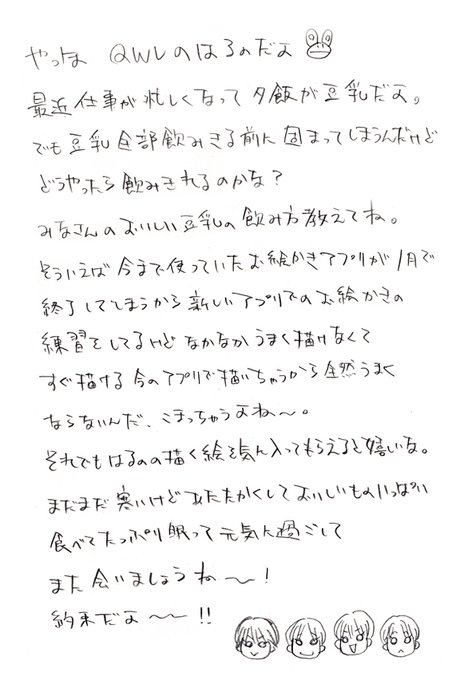 やっほ QWLのはるのだよ
最近仕事が忙しくなって夕飯が豆乳だよ。
でも豆乳全部飲みきる前に固まってしまうんだけど
どうやったら飲みきれるのかな？
みなさんのおいしい豆乳の飲み方教えてね。
そういえば今まで使っていたお絵かきアプリが1月で
終了してしまうから新しいアプリでのお絵かきの
練習をしてるけどなかなかうまく描けなくて
すぐ描ける今のアプリで描いちゃうから全然うまく
ならないんだ、こまっちゃうよね〜。
それでもはるのの描く絵を気に入ってもらえると嬉しいな。
まだまだ寒いけどあたたかくしておいしいものいっぱい
食べてたっぷり眠って元気に過ごして
また会いましょうね〜！
約束だよ〜〜!!